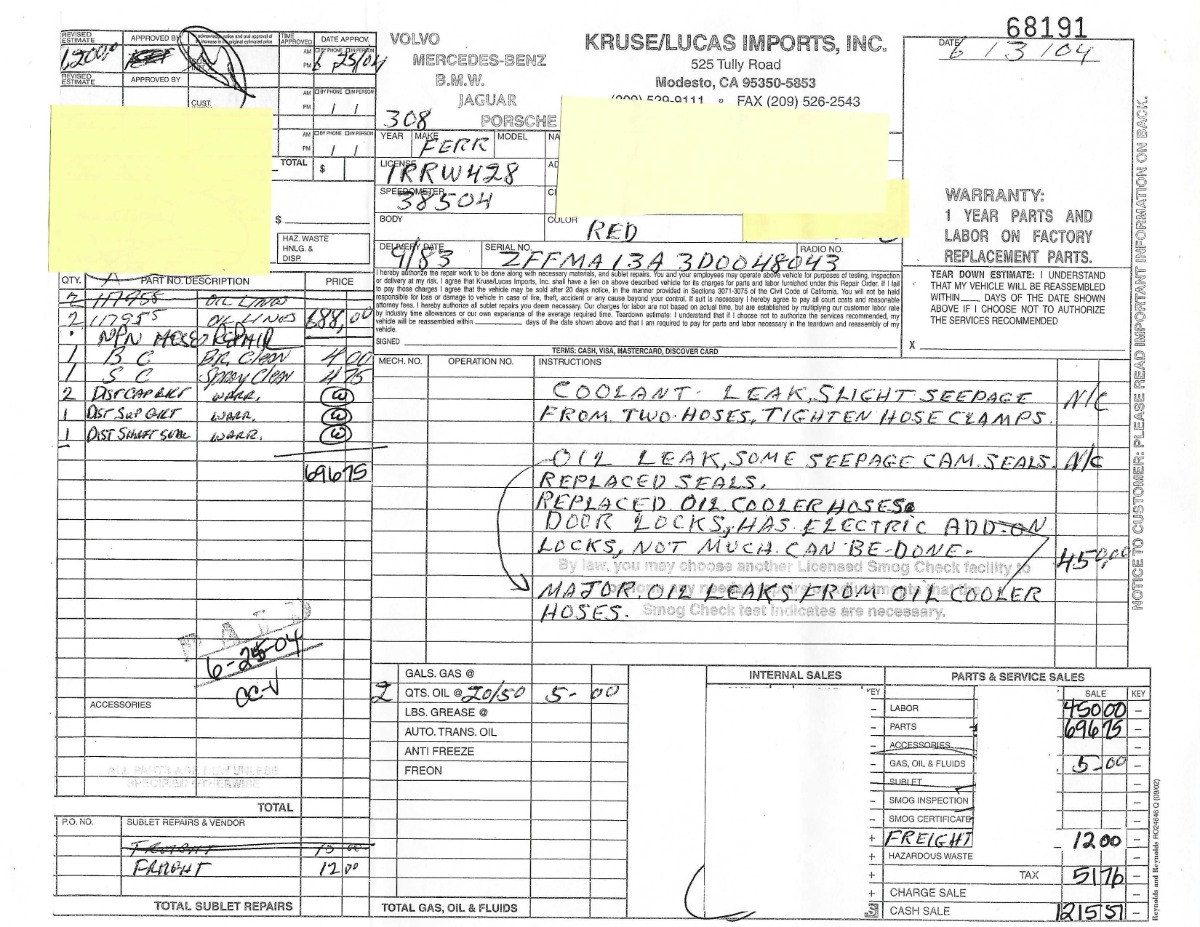 68191
REVISED ESTIMATE
APPROVED BY
TIME APPROVED
DATE APPROV.
1,200.00
AM
PM
BY PHONE
IN PERSON
6 25/04
REVISED ESTIMATE
APPROVED BY
CUST.
AM
PM
BY PHONE IN PERSON
AM
PM
BY PHONE IN PERSON
TOTAL
$
$
HAZ. WASTE
HNLG. &
DISP.
VOLVO
MERCEDES-BENZ
B.M.W.
JAGUAR
PORSCHE
KRUSE/LUCAS IMPORTS, INC.
525 Tully Road
Modesto, CA 95350-5853
(209) 529-9111 • FAX (209) 526-2543
DATE
6 / 3 / 04
308
YEAR
MAKE
MODEL
FERR
LICENSE
1RRW428
SPEEDOMETER
38504
BODY
COLOR
RED
DELIVERY DATE
9/83
SERIAL NO.
ZFFMA13A3D0048043
RADIO NO.
WARRANTY:
1 YEAR PARTS AND
LABOR ON FACTORY
REPLACEMENT PARTS.
TEAR DOWN ESTIMATE: I UNDERSTAND
THAT MY VEHICLE WILL BE REASSEMBLED
WITHIN____ DAYS OF THE DATE SHOWN
ABOVE IF I CHOOSE NOT TO AUTHORIZE
THE SERVICES RECOMMENDED
X
NOTICE TO CUSTOMER: PLEASE READ IMPORTANT INFORMATION ON BACK.
I hereby authorize the repair work to be done along with necessary materials, and sublet repairs. You and your employees may operate above vehicle for purposes of testing, inspection
or delivery at my risk. I agree that Kruse/Lucas Imports, Inc. shall have a lien on above described vehicle for its charges for parts and labor furnished under this Repair Order. If I fail
to pay those charges I agree that the vehicle may be sold after 20 days notice, in the manner provided in Sections 3071-3075 of the Civil Code of California. You will not be held
responsible for loss or damage to vehicle in case of fire, theft, accident or any cause beyond your control. If suit is necessary I hereby agree to pay all court costs and reasonable
attorney fees. I hereby authorize all sublet repairs you deem necessary. Our charges for labor are not based on actual time, but are established by multiplying our customer labor rate
by industry time allowances or our own experience of the average required time. Teardown estimate: I understand that if I choose not to authorize the services recommended, my
vehicle will be reassembled within ______ days of the date shown above and that I am required to pay for parts and labor necessary in the teardown and reassembly of my
vehicle.
SIGNED
TERMS: CASH, VISA, MASTERCARD, DISCOVER CARD
QTY.
PART NO. DESCRIPTION
PRICE
2 117955 OIL LINES
2 117955 OIL LINES 688,00
NPN HOSES REPAIR
1 B C BR. CLEAN 4 00
1 S C SPRAY CLEAN 4 75
2 DIST CAP GKT WARR. W
1 DIST SUP GKT WARR. W
1 DIST SHAFT SEAL WARR. W
696 75
MECH. NO.
OPERATION NO.
INSTRUCTIONS
COOLANT LEAK, SLIGHT SEEPAGE N/C
FROM TWO HOSES, TIGHTEN HOSE CLAMPS.
OIL LEAK, SOME SEEPAGE CAM SEALS. N/C
REPLACED SEALS.
REPLACED OIL COOLER HOSES.
DOOR LOCKS, HAS ELECTRIC ADD-ON
LOCKS, NOT MUCH CAN BE DONE. 450.00
By law, you may choose another Licensed Smog Check facility to
MAJOR OIL LEAKS FROM OIL COOLER
HOSES.
Smog Check test indicates are necessary.
PAID
6-25-04
CC-V
ACCESSORIES
ALL PARTS ARE NEW UNLESS
SPECIFIED OTHERWISE
TOTAL
P.O. NO.
SUBLET REPAIRS & VENDOR
FREIGHT 15 00
FREIGHT 12 00
TOTAL SUBLET REPAIRS
GALS. GAS @
2 QTS. OIL @ 20/50 5- 00
LBS. GREASE @
AUTO. TRANS. OIL
ANTI FREEZE
FREON
TOTAL GAS, OIL & FLUIDS
INTERNAL SALES
KEY
PARTS & SERVICE SALES
SALE
KEY
LABOR 450 00
PARTS 696 75
ACCESSORIES
GAS, OIL & FLUIDS 5-00
SUBLET
SMOG INSPECTION
SMOG CERTIFICATE
FREIGHT 12 00
HAZARDOUS WASTE
TAX 51 76
CHARGE SALE
CASH SALE 1215 51
Reynolds and Reynolds RO24646 Q (09/02)